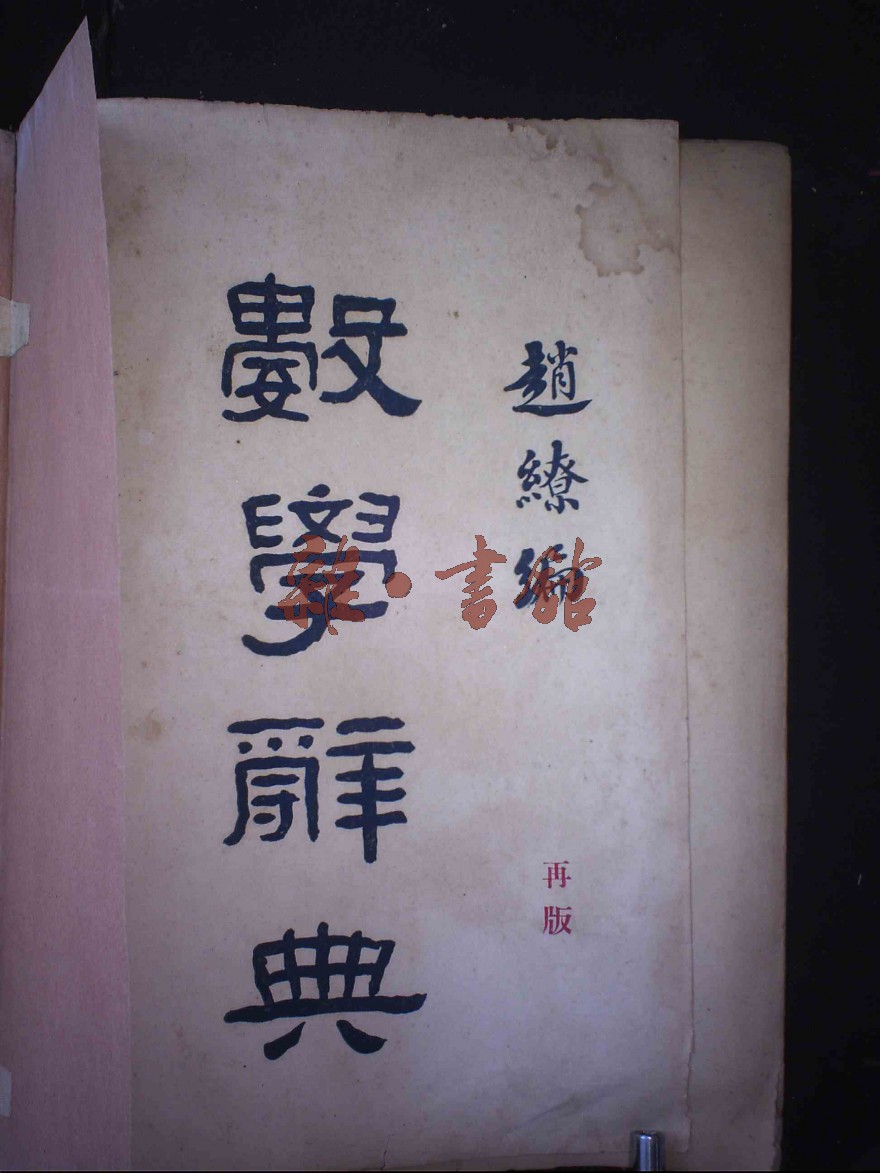 趙繚編
數學辭典
再版
雜·書館